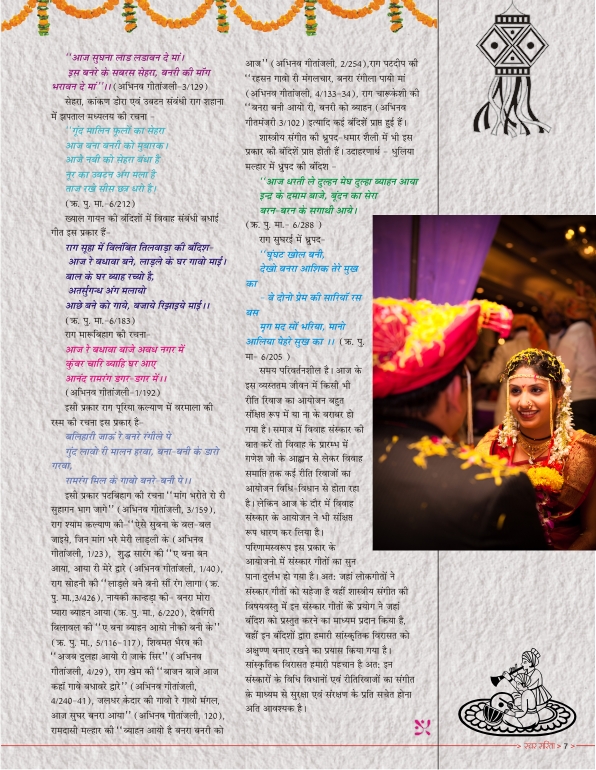 "आज सुघना लाड लडावन दे मां।
इस बनरे के सबरस सेहरा, बनरी की माँग
भरावन दे मां"।। (अभिनव गीतांजली-3/129)
सेहरा, कांकण डोरा एवं उबटन संबंधी राग शहाना
में झपताल मध्यलय की रचना -
"गूंद मालिन फूलों का सेहरा
आज बना बनरी को मुबारक।
आजे नबी को सेहरा बंधा है
नूर का उबटन अंग मला है
ताज रखे सीस छत्र धरी है।
(क्र. पु. मा.-6/212)
ख्याल गायन की बंदिशों में विवाह संबंधी बधाई
गीत इस प्रकार हैं-
राग सूहा में विलंबित तिलवाड़ा की बंदिश-
आज रे बधावा बने, लाड़ले के घर गावो माई।
बाल के घर ब्याह रच्यो है,
अतर्सुगन्ध अंग मलायो
आछे बने को गावे, बजाये रिझाइये माई।।
(क्र. पु. मा.-6/183)
राग मारूबिहाग की रचना-
आज रे बधावा बाजे अवध नगर में
कुंवर चारि ब्याहि घर आए
आनंद रामरंग डगर-डगर में।।
(अभिनव गीतांजली-1/192)
इसी प्रकार राग पूरिया कल्याण में वरमाला की
रस्म की रचना इस प्रकार है-
बलिहारी जाऊं रे बनरे रंगीले पे
गूंद लावो री मालन हरवा, बना-बनी के डारो
गरवा,
रामरंग मिल के गावो बनरे-बनी पे।।
इसी प्रकार पटबिहाग की रचना "मांग भरोते रो री
सुहागन भाग जागे" (अभिनव गीतांजली, 3/159),
राग श्याम कल्याण की-"ऐसे सुबना के बल-बल
जाइये, जिन मांग भरे मेरी लाड़ली के (अभिनव
गीतांजली, 1/23), शुद्ध सारंग की "ए बना बन
आया, आया री मेरे द्वारे (अभिनव गीतांजली, 1/40),
राग सोहनी की "लाड़ले बने बनी सों रंग लागा (क्र.
पु. मा.,3/426), नायकी कान्हड़ा की- बनरा मोरा
प्यारा ब्याहन आया (क्र. पु. मा., 6/220), देवगिरी
बिलावल की "ए बना ब्याहन आयो नीको बनी के"
(क्र. पु. मा., 5/116-117), शिवमत भैरव की
"अजब दुलहा आयो री जाके सिर" (अभिनव
गीतांजली, 4/29), राग खेम की "बाजन बाजे आज
कहां गावे बधावरे द्वारे" (अभिनव गीतांजली,
4/240-41), जलधर केदार की गावो रे गावो मंगल,
आज सुघर बनरा आया" (अभिनव गीतांजली, 120),
रामदासी मल्हार की "ब्याहन आयो है बनरा बनरी को
आज" (अभिनव गीतांजली, 2/254),राग पटदीप की
"रहसन गावो री मंगलचार, बनरा रंगीला पायो मां
(अभिनव गीतांजली, 4/133-34), राग चारूकेशी की
"बनरा बनी आयो री, बनरी को ब्याहन (अभिनव
गीतमंजरी 3/102) इत्यादि कई बंदिशें प्राप्त हुई हैं।
शास्त्रीय संगीत की ध्रुपद-धमार शैली में भी इस
प्रकार की बंदिशें प्राप्त होती हैं। उदाहरणार्थ - धुलिया
मल्हार में ध्रुपद की बंदिश -
"आज धरती ले दुल्हन मेघ दुल्हा ब्याहन आया
इन्द्र के दमाम बाजे, बूंदन का सेरा
बरन-बरन के सगाथी आवे।
(क्र. पु. मा.- 6/288 )
राग सुघरई में ध्रुपद-
"घूंघट खोल बनी,
देखो बनरा आशिक तेरे मुख
का
- बे दोनो प्रेम की सारियाँ रस
बस
मृग मद सों भरिया, मानो
आलिया पेहरे मुख का ।। (क्र. पु.
मा- 6/205 )
समय परिवर्तनशील है। आज के
इस व्यस्ततम जीवन में किसी भी
रीति रिवाज का आयोजन बहुत
संक्षिप्त रूप में या ना के बराबर हो
गया है। समाज में विवाह संस्कार की
बात करें तो विवाह के प्रारम्भ में
गणेश जी के आह्वान से लेकर विवाह
समाप्ति तक कई रीति रिवाजों का
आयोजन विधि-विधान से होता रहा
है। लेकिन आज के दौर में विवाह
संस्कार के आयोजन ने भी संक्षिप्त
रूप धारण कर लिया है।
परिणामस्वरूप इस प्रकार के
आयोजनो में संस्कार गीतों का सुन
पाना दुर्लभ हो गया है। अत: जहां लोकगीतों ने
संस्कार गीतों को सहेजा है वहीं शास्त्रीय संगीत की
विषयवस्तु में इन संस्कार गीतों के प्रयोग ने जहां
बंदिश को प्रस्तुत करने का माध्यम प्रदान किया है,
वहीं इन बंदिशों द्वारा हमारी सांस्कृतिक विरासत को
अक्षुण्ण बनाए रखने का प्रयास किया गया है।
सांस्कृतिक विरासत हमारी पहचान है अत: इन
संस्कारों के विधि विधानों एवं रीतिरिवाजों का संगीत
के माध्यम से सुरक्षा एवं संरक्षण के प्रति सचेत होना
अति आवश्यक है।
> स्वर सरिता > 7